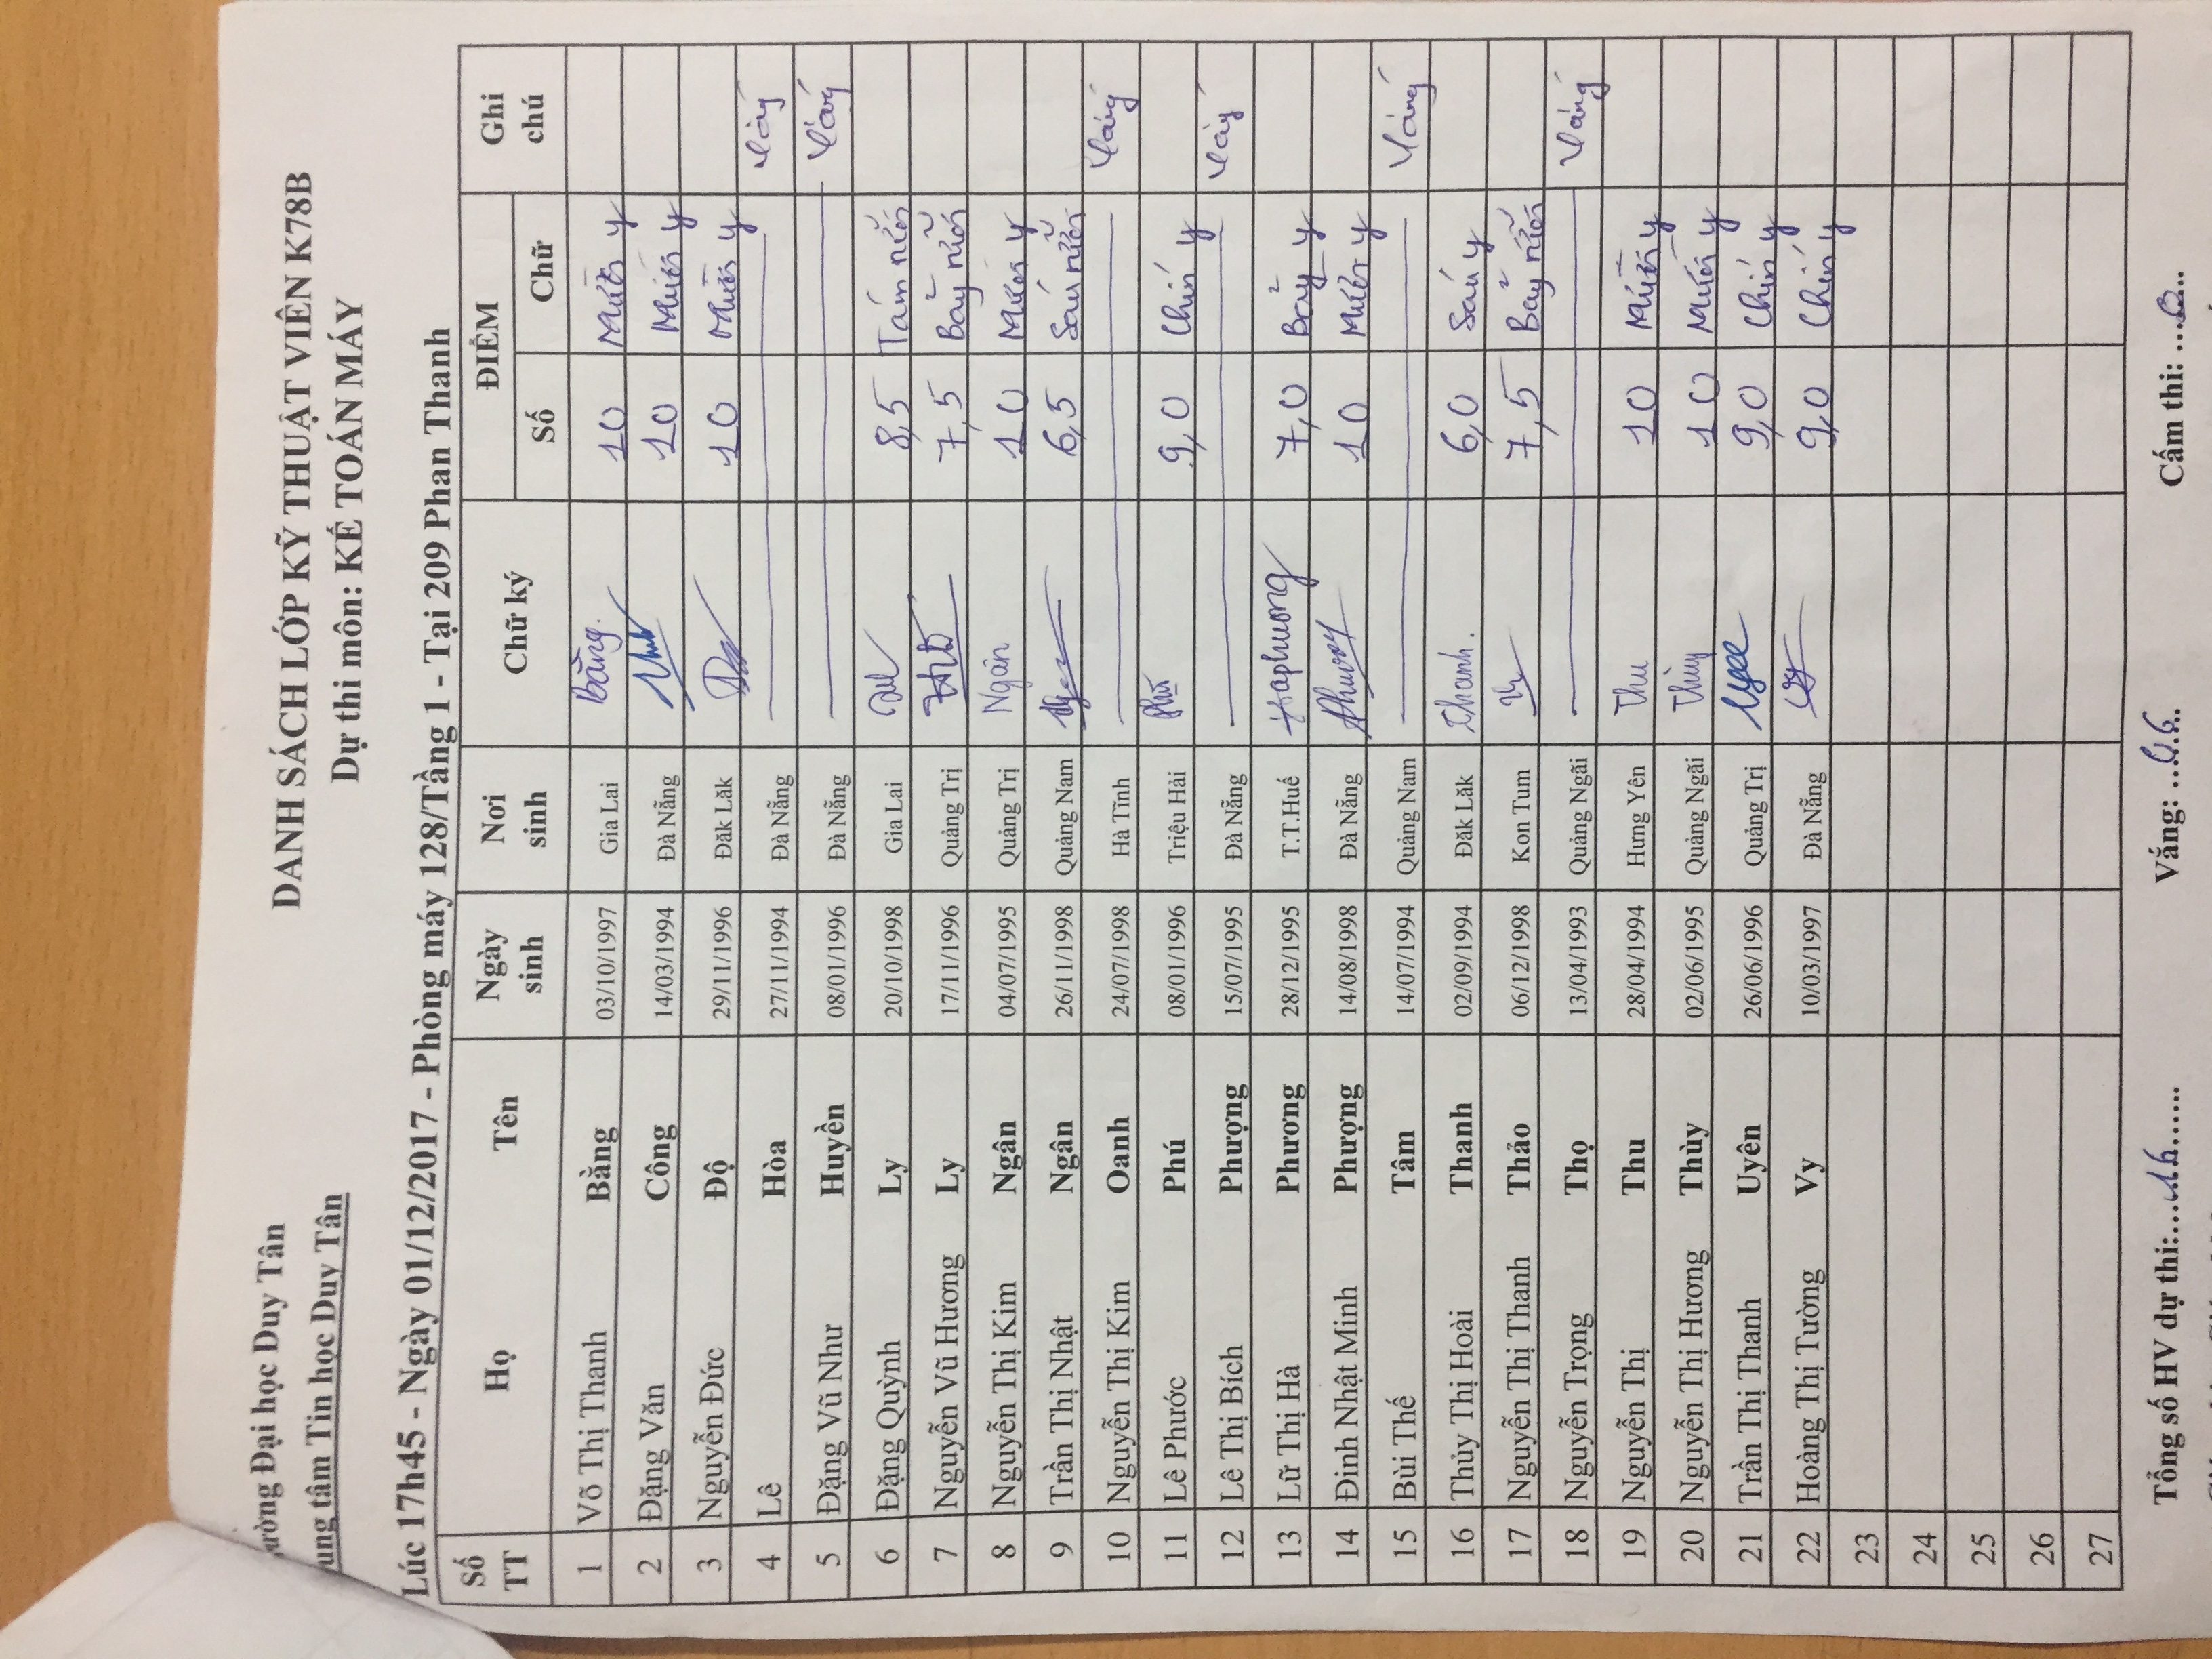 ường Đại học Duy Tân
ung tâm Tin học Duy Tân
DANH SÁCH LỚP KỸ THUẬT VIÊN K78B
Dự thi môn: KẾ TOÁN MÁY
Lúc 17h45 - Ngày 01/12/2017 - Phòng máy 128/Tầng 1 - Tại 209 Phan Thanh
Số TT Họ Tên Ngày sinh Nơi sinh Chữ ký ĐIỂM Ghi chú
Số Chữ
1 Võ Thị Thanh Bằng 03/10/1997 Gia Lai Bằng. 10 Mười y
2 Đặng Văn Công 14/03/1994 Đà Nẵng 10 Mười y
3 Nguyễn Đức Độ 29/11/1996 Đăk Lăk 10 Mười y
4 Lê Hòa 27/11/1994 Đà Nẵng Vắng
5 Đặng Vũ Như Huyền 08/01/1996 Đà Nẵng Vắng
6 Đặng Quỳnh Ly 20/10/1998 Gia Lai 8,5 Tám rưỡi
7 Nguyễn Vũ Hương Ly 17/11/1996 Quảng Trị 7,5 Bảy rưỡi
8 Nguyễn Thị Kim Ngân 04/07/1995 Quảng Trị Ngân 10 Mười y
9 Trần Thị Nhật Ngân 26/11/1998 Quảng Nam 6,5 Sáu rưỡi
10 Nguyễn Thị Kim Oanh 24/07/1998 Hà Tĩnh Vắng
11 Lê Phước Phú 08/01/1996 Triệu Hải Phú 9,0 Chín y
12 Lê Thị Bích Phượng 15/07/1995 Đà Nẵng Vắng
13 Lữ Thị Hà Phương 28/12/1995 T.T.Huế Haphuong 7,0 Bảy y
14 Đinh Nhật Minh Phượng 14/08/1998 Đà Nẵng Phuong 10 Mười y
15 Bùi Thế Tâm 14/07/1994 Quảng Nam Vắng
16 Thủy Thị Hoài Thanh 02/09/1994 Đăk Lăk Thanh. 6,0 Sáu y
17 Nguyễn Thị Thanh Thảo 06/12/1998 Kon Tum 7,5 Bảy rưỡi
18 Nguyễn Trọng Thọ 13/04/1993 Quảng Ngãi Vắng
19 Nguyễn Thị Thu 28/04/1994 Hưng Yên Thu 10 Mười y
20 Nguyễn Thị Hương Thùy 02/06/1995 Quảng Ngãi Thùy 10 Mười y
21 Trần Thị Thanh Uyên 26/06/1996 Quảng Trị 9,0 Chín y
22 Hoàng Thị Tường Vy 10/03/1997 Đà Nẵng 9,0 Chín y
23
24
25
26
27
Tổng số HV dự thi:....16....... Vắng: ...06... Cấm thi: ...0...